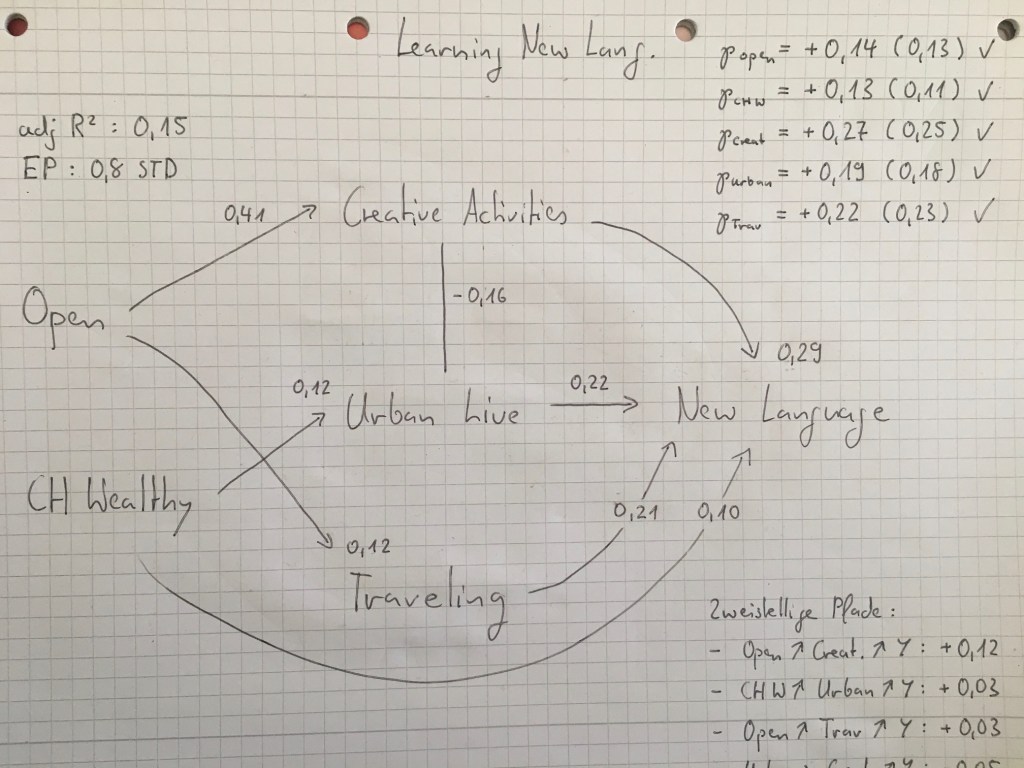 Learning New Lang.
γopen = + 0,14 (0,13) ✓
γCHW = + 0,13 (0,11) ✓
γCreat = + 0,27 (0,25) ✓
γurban = + 0,19 (0,18) ✓
γTrav = + 0,22 (0,23) ✓
adj R² : 0,15
EP : 0,8 STD
0,41
Creative Activities
Open
-0,16
0,29
0,12
Urban Live
0,22
New Language
CH Wealthy
0,21
0,10
0,12
Traveling
Zweistellige Pfade :
- Open ↗ Creat. ↗ Y : + 0,12
- CHW ↗ Urban ↗ Y : + 0,03
- Open ↗ Trav ↗ Y : + 0,03